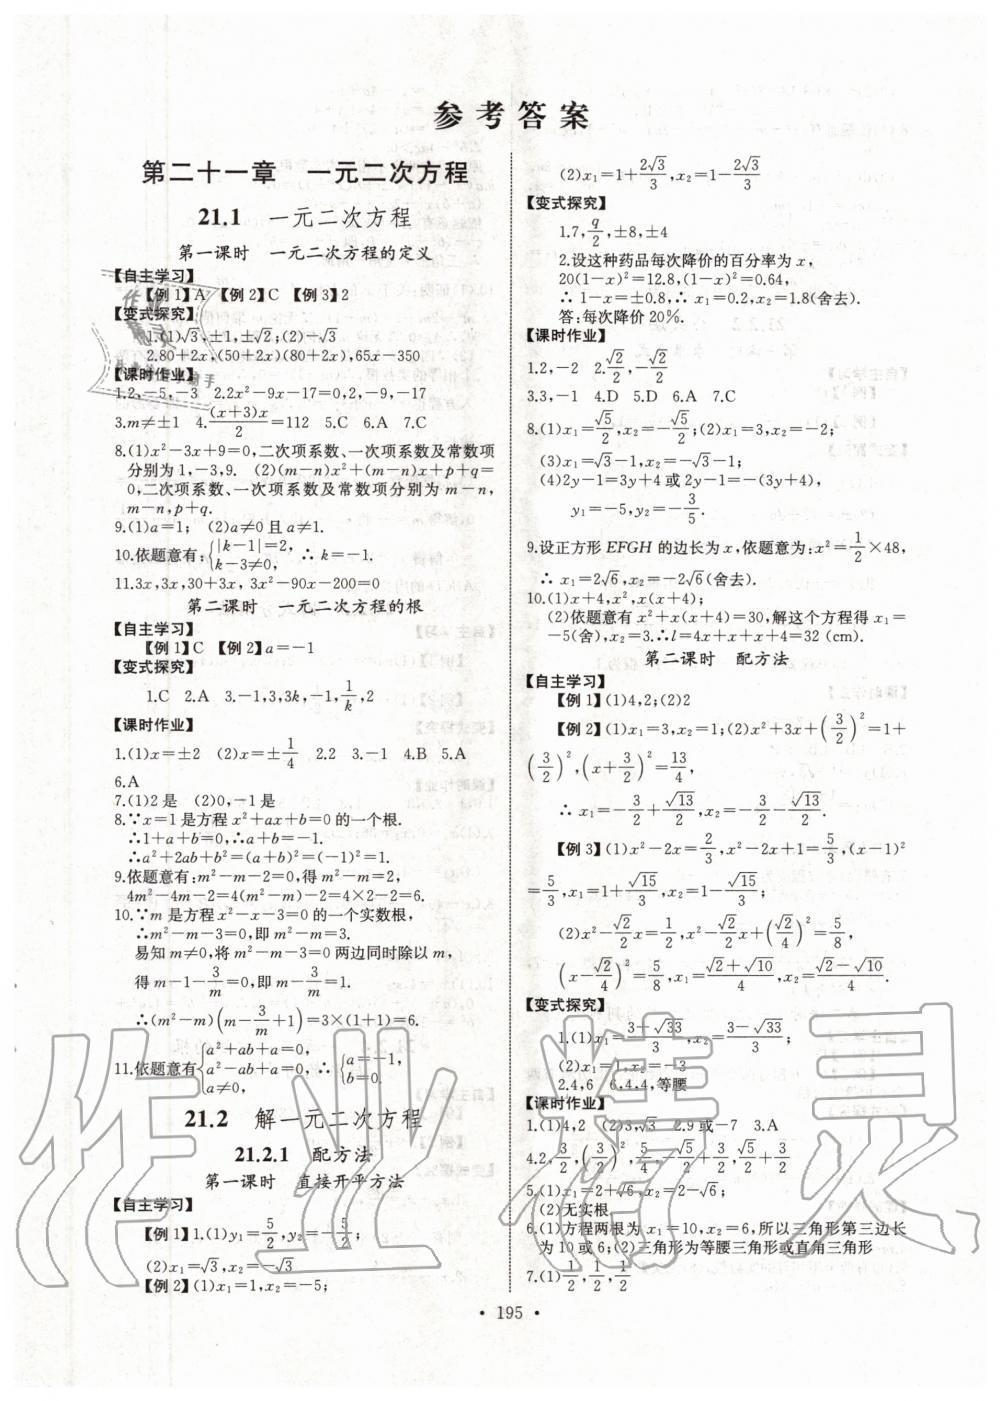 参考答案
第二十一章　一元二次方程
21.1　一元二次方程
第一课时　一元二次方程的定义
【自主学习】
【例1】A　【例2】C　【例3】2
【变式探究】
1.(1)√3,±1,±√2;(2)-√3
2.80+2x,(50+2x)(80+2x),65x-350
【课时作业】
1.2,-5,-3　2.2x²-9x-17=0,2,-9,-17
3.m≠±1　4.(x+3)x/2=112　5.C　6.A　7.C
8.(1)x²-3x+9=0,二次项系数、一次项系数及常数项
分别为1,-3,9.　(2)(m-n)x²+(m-n)x+p+q=
0,二次项系数、一次项系数及常数项分别为m-n,
m-n,p+q.
9.(1)a=1;　(2)a≠0且a≠1.
10.依题意有:{|k-1|=2, k-3≠0, ∴k=-1.
11.3x,3x,30+3x,3x²-90x-200=0
第二课时　一元二次方程的根
【自主学习】
【例1】C　【例2】a=-1
【变式探究】
1.C　2.A　3.-1,3,3k,-1,1/k,2
【课时作业】
1.(1)x=±2　(2)x=±1/4　2.2　3.-1　4.B　5.A
6.A
7.(1)2是　(2)0,-1是
8.∵x=1是方程x²+ax+b=0的一个根.
∴1+a+b=0,∴a+b=-1.
∴a²+2ab+b²=(a+b)²=(-1)²=1.
9.依题意有:m²-m-2=0,得m²-m=2,
4m²-4m-2=4(m²-m)-2=4×2-2=6.
10.∵m是方程x²-x-3=0的一个实数根,
∴m²-m-3=0,即m²-m=3.
易知m≠0,将m²-m-3=0两边同时除以m,
得m-1-3/m=0,即m-3/m=1.
∴(m²-m)(m-3/m+1)=3×(1+1)=6.
11.依题意有{a²+ab+a=0, a²-ab+a=0, a≠0, ∴{a=-1, b=0.
21.2　解一元二次方程
21.2.1　配方法
第一课时　直接开平方法
【自主学习】
【例1】1.(1)y₁=5/2,y₂=-5/2;
(2)x₁=√3,x₂=-√3
【例2】(1)x₁=1,x₂=-5;
(2)x₁=1+2√3/3,x₂=1-2√3/3
【变式探究】
1.7,q/2,±8,±4
2.设这种药品每次降价的百分率为x,
20(1-x)²=12.8,(1-x)²=0.64,
∴1-x=±0.8,∴x₁=0.2,x₂=1.8(舍去).
答:每次降价20%.
【课时作业】
1.2,-2　2.√2/2,-√2/2
3.3,-1　4.D　5.D　6.A　7.C
8.(1)x₁=√5/2,x₂=-√5/2;(2)x₁=3,x₂=-2;
(3)x₁=√3-1,x₂=-√3-1;
(4)2y-1=3y+4或2y-1=-(3y+4),
y₁=-5,y₂=-3/5.
9.设正方形EFGH的边长为x,依题意为:x²=1/2×48,
∴x₁=2√6,x₂=-2√6(舍去).
10.(1)x+4,x²,x(x+4);
(2)依题意有x²+x(x+4)=30,解这个方程得x₁=
-5(舍),x₂=3.∴l=4x+x+x+4=32(cm).
第二课时　配方法
【自主学习】
【例1】(1)4,2;(2)2
【例2】(1)x₁=3,x₂=1;(2)x²+3x+(3/2)²=1+
(3/2)²,(x+3/2)²=13/4,
∴x₁=-3/2+√13/2,x₂=-3/2-√13/2.
【例3】(1)x²-2x=2/3,x²-2x+1=5/3,(x-1)²
=5/3,x₁=1+√15/3,x₂=1-√15/3;
(2)x²-√2/2x=1/2,x²-√2/2x+(√2/4)²=5/8,
(x-√2/4)²=5/8,x₁=(√2+√10)/4,x₂=(√2-√10)/4.
【变式探究】
1.(1)x₁=(3+√33)/3,x₂=(3-√33)/3;
(2)x₁=1,x₂=-3
2.4,6　6,4,4,等腰
【课时作业】
1.(1)4,2　(2)3,√3　2.9或-7　3.A
4.2,3/2,(3/2)²,5/4,-3/2,3/2
5.(1)x₁=2+√6,x₂=2-√6;
(2)无实根.
6.(1)方程两根为x₁=10,x₂=6,所以三角形第三边长
为10或6;(2)三角形为等腰三角形或直角三角形
7.(1)1/2,1/2,1/2
• 195 •
作业精灵